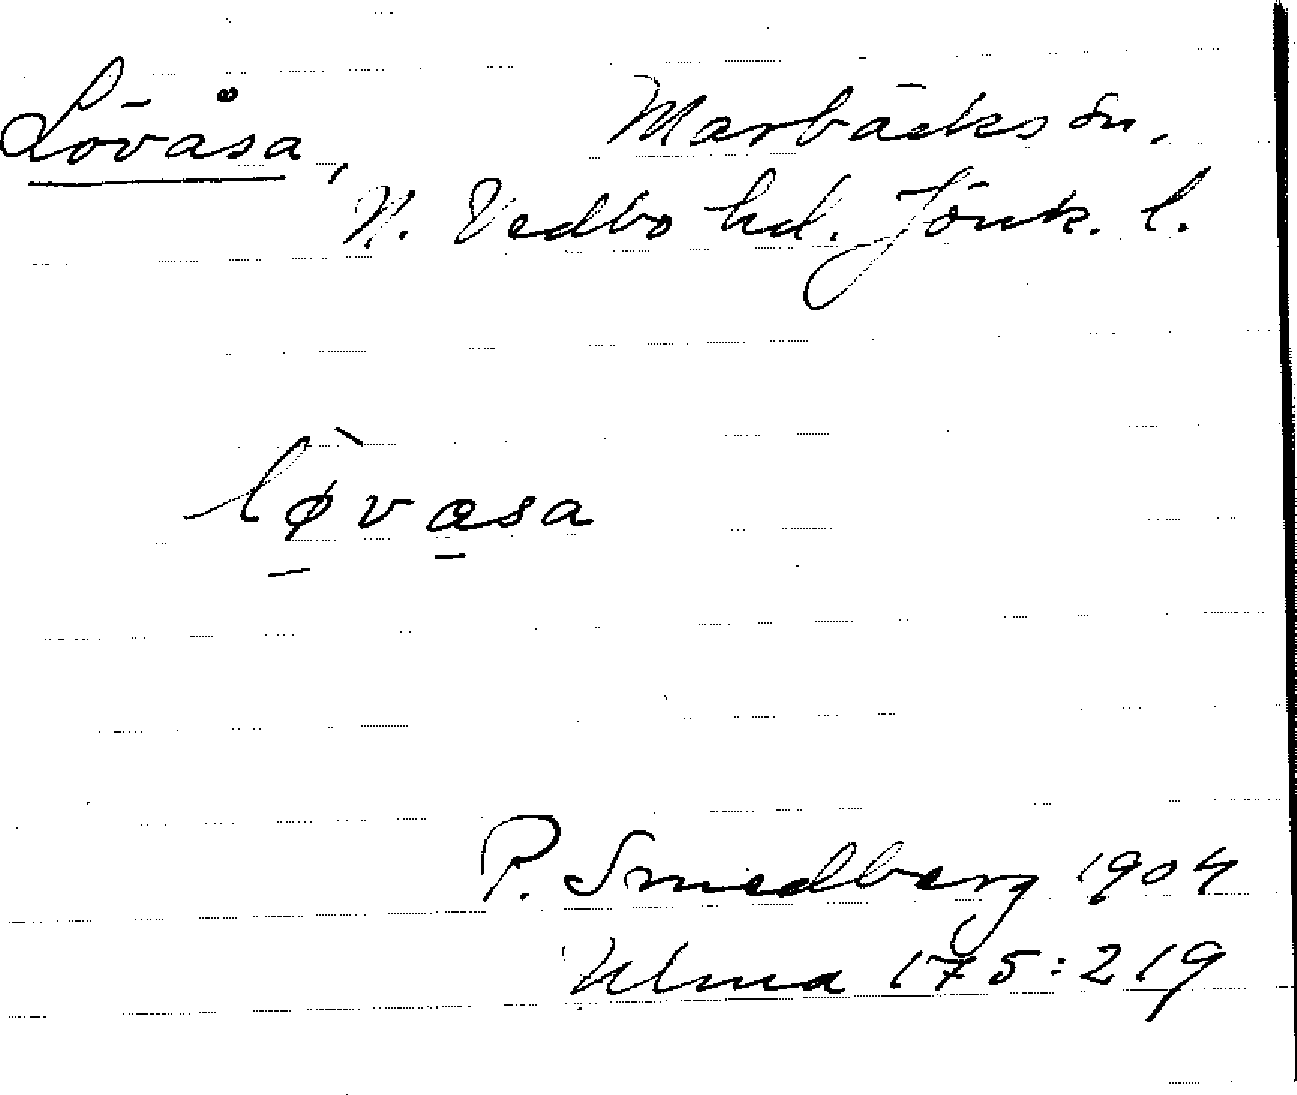 Lövåsa, Marbäcks sn.
N. Vedbo hd. Jönk. l.
lø̀væsa
P. Smedberg 1904
Ulma 175:219